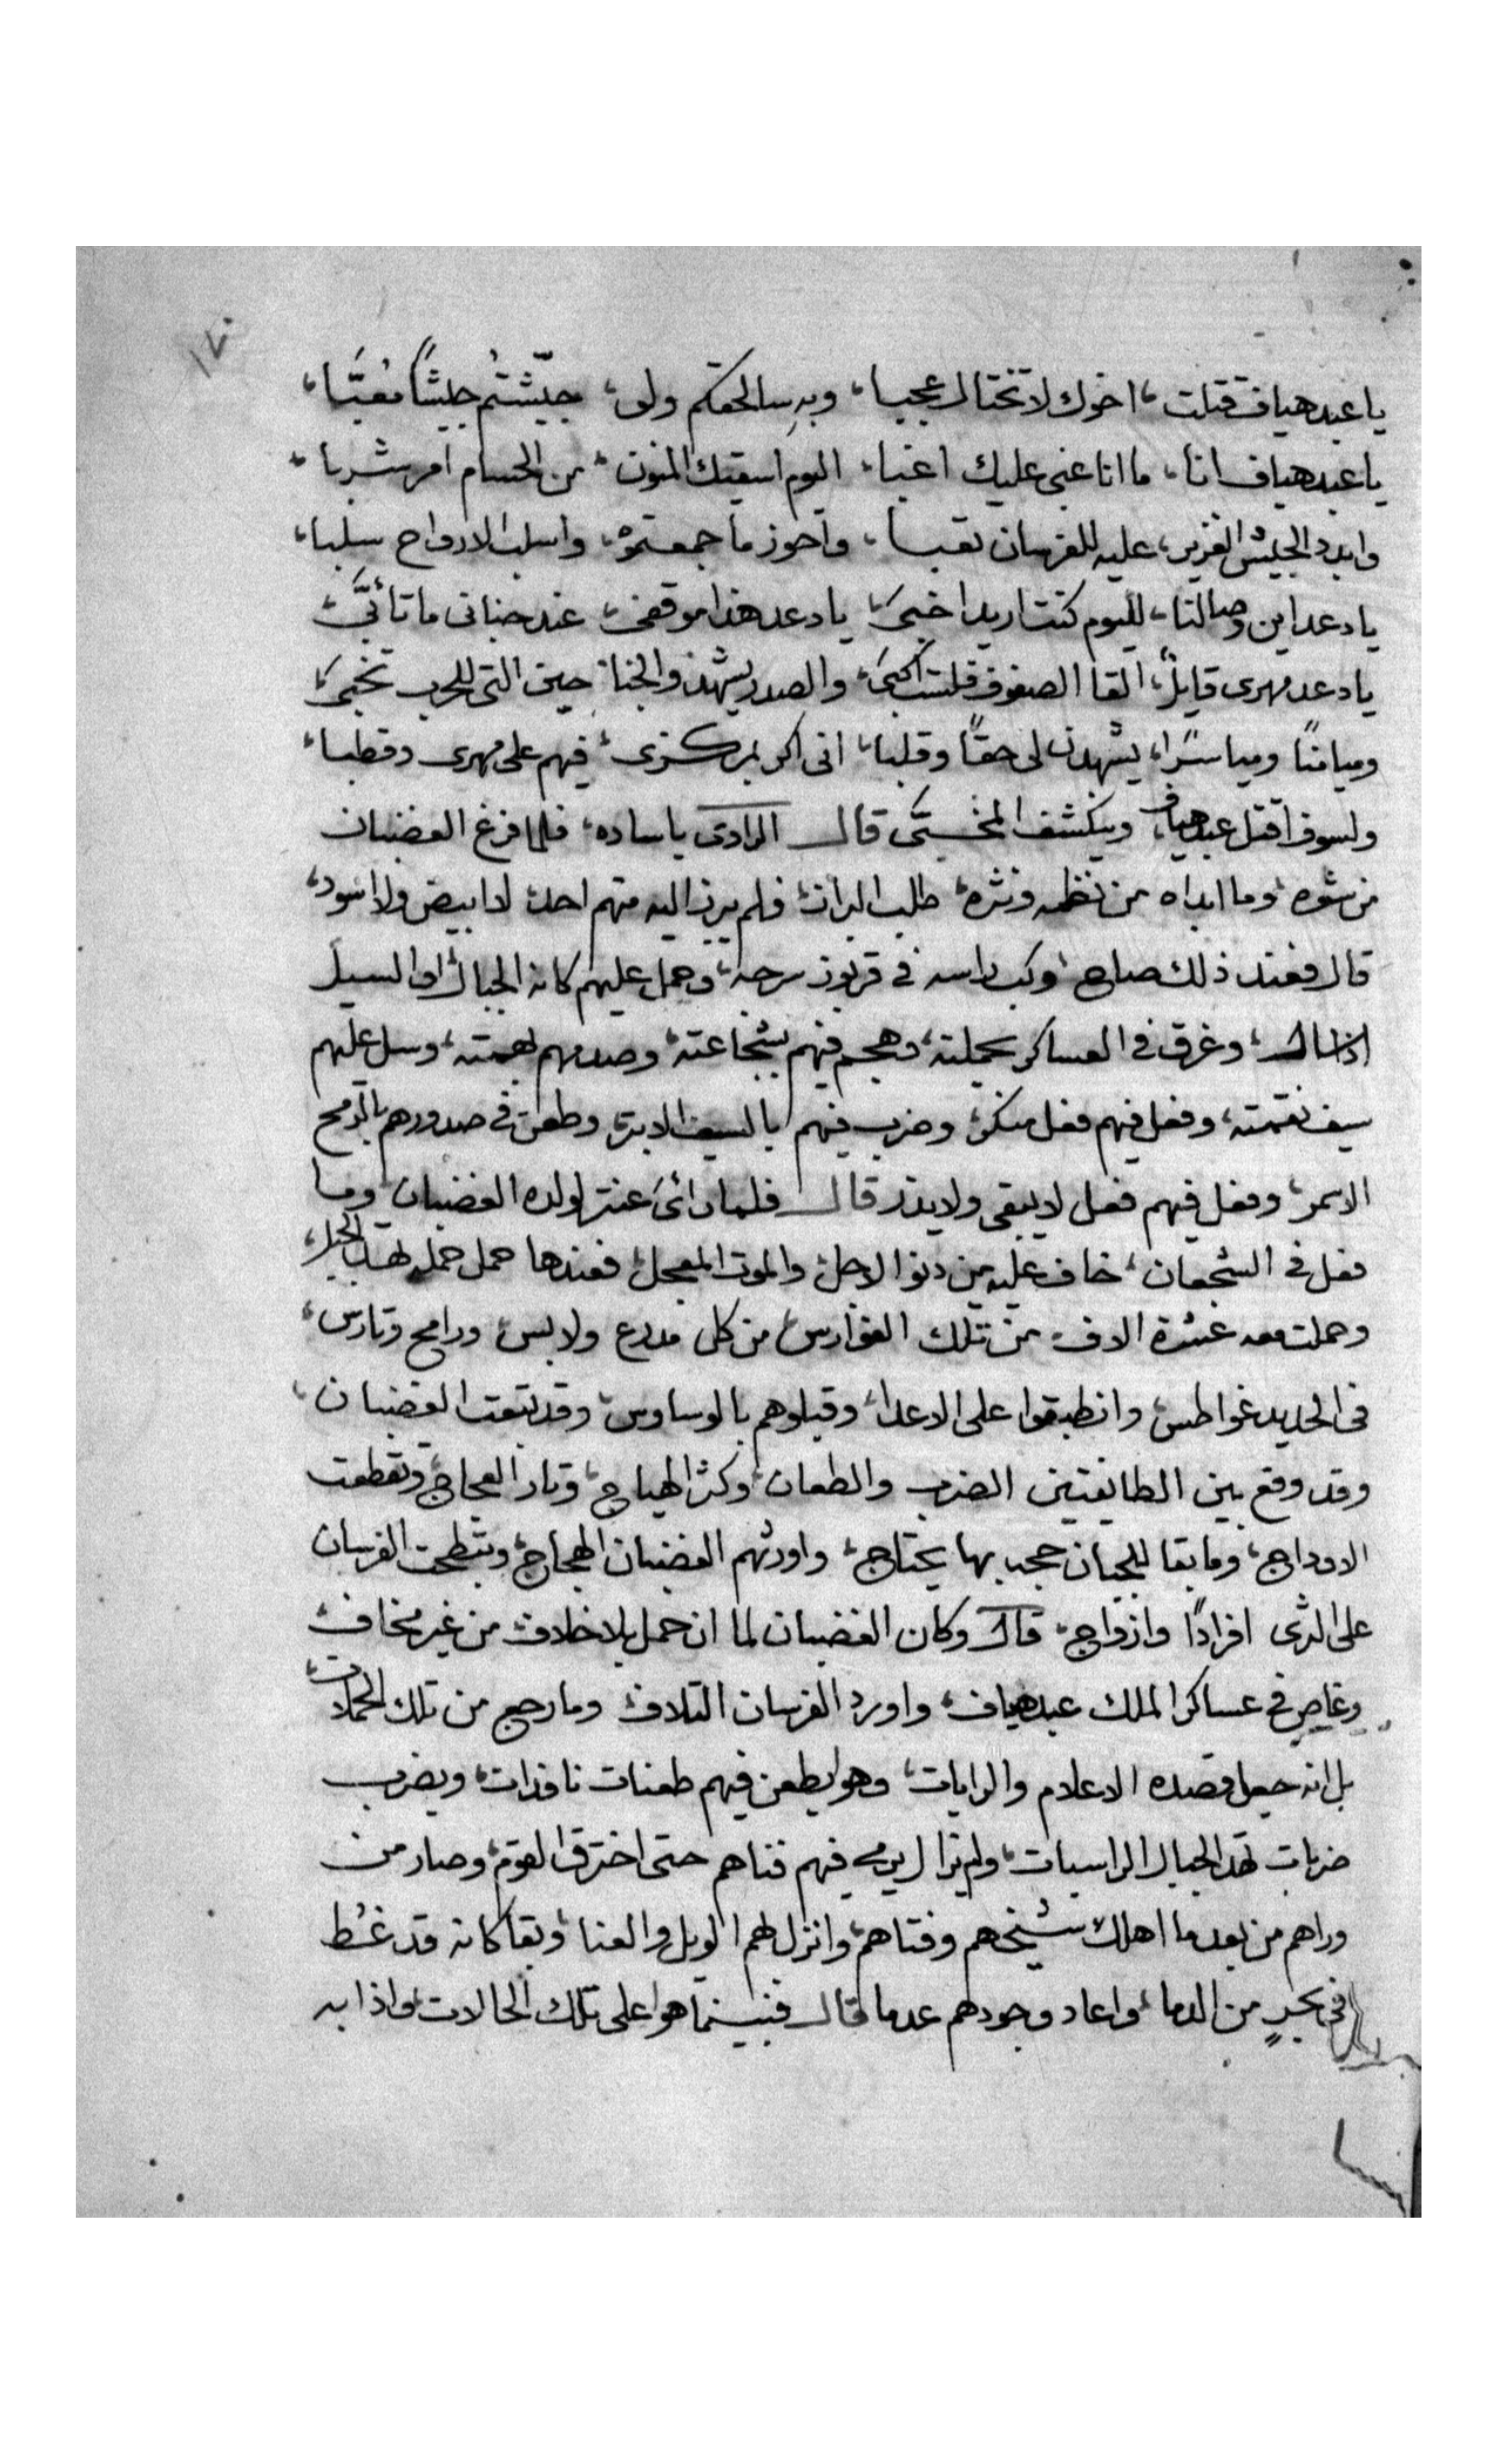 ١٧٠
يا عبد هياف قتلت، اخوك لا تختال عجبا، وبه سالحقكم ولو، جيّشتُم جيشًا مُعبَّا،
يا عبد هياف انا، ما انا غبى عليك اغبا، اليوم اسقيك المنون، من الحسام امر شربا،
وابدد الجيش الغزير، عليه للفرسان تعبا، واحوز ما جمعتموُ، واسلب الارواح سلبا،
يا دعد اين وصالنا، لليوم كنت اريد اخبى، يا دعد هذا موقفى، عند جنانى ما تأبَّى،
يا دعد مهرى قايلٌ، القا الصفوف فلست اكبى، والصدر يشهد والجنا، حين التى للحرب تخبى،
وميامنًا ومياسرًا، يشهدن لى حقًا وقلبا، انى اكر بمركزى، فيهم على مهرى وقطبا،
ولسوف اقتل عبد هياف، وينكشف المخبَّى قال الراوى يا ساده، فلما فرغ الغضبان
من شعره، وما ابداه من نظمه ونثره، طلب البراز، فلم يبرز اليه منهم احد، لا ابيض ولا اسود،
قال فعند ذلك صاح، وكب راسه فى قربوز سرجه، وحمل عليهم كانه الجبال او السيل
اذا سال، وغرق فى العساكر بحملته، وهجم فيهم بشجاعته، وصدمهم بهمته، وسل عليهم
سيف نقمته، وفعل فيهم فعل منكر، وضرب فيهم بالسيف الابتر، وطعن فى صدورهم بالرمح
الاسمر، وفعل فيهم فعل لا يبقى ولا يذر قال فلما رأى عنتر لولده الغضبان، وما
فعل فى الشجعان، خاف عليه من دنو الاجل، والموت المعجل، فعندها حمل حمله تهد الجبل،
وحملت معه عشرة الاف، من تلك الفوارس، من كل مدرع ولابس، ورامح وتارس،
فى الحديد غواطس، وانطبقوا على الاعدا، وقبلوهم بالوساوس، وقد تبعت الغضبان،
وقد وقع بين الطايفتين الضرب والطعان، وكثر الهياج، وثار العجاج، وتقطعت
الاوداج، وما بقا للجبان حجه بها يحتاج، واورثهم الغضبان الهجاج، وتبطحت الفرسان
على الثرى افرادًا وازواج، قال وكان الغضبان لما ان حمل بلا خلاف، من غير مخاف،
وغاص فى عساكر الملك عبد هياف، واورد الفرسان التلاف، وما رجع من تلك الحملات،
بل انه جعل قصده الاعلام والرايات، وهو يطعن فيهم طعنات نافذات، ويضرب
ضربات تهد الجبال الراسيات، ولم يزال يرمى فيهم فناهم حتى اخترق القوم، وصار من
وراهم من بعد ما اهلك شيخهم وفتاهم، وانزل لهم الويل والعنا، وبقا كانه قد غُط
فى بحرٍ من الدما، واعاد وجودهم عدما قال فبينما هوا على تلك الحالات، واذا به